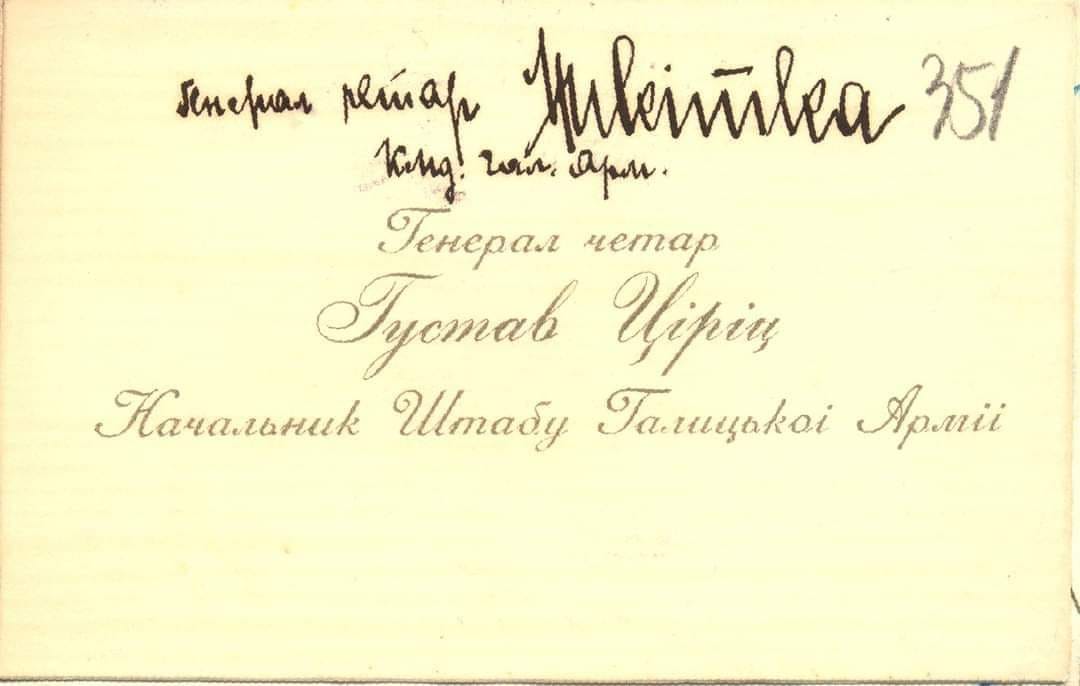 Генерал четар Микитка 351
Кмд. Гал. Арм.
Генерал четар
Густав Ціріц
Начальник Штабу Галицькоі Арміі